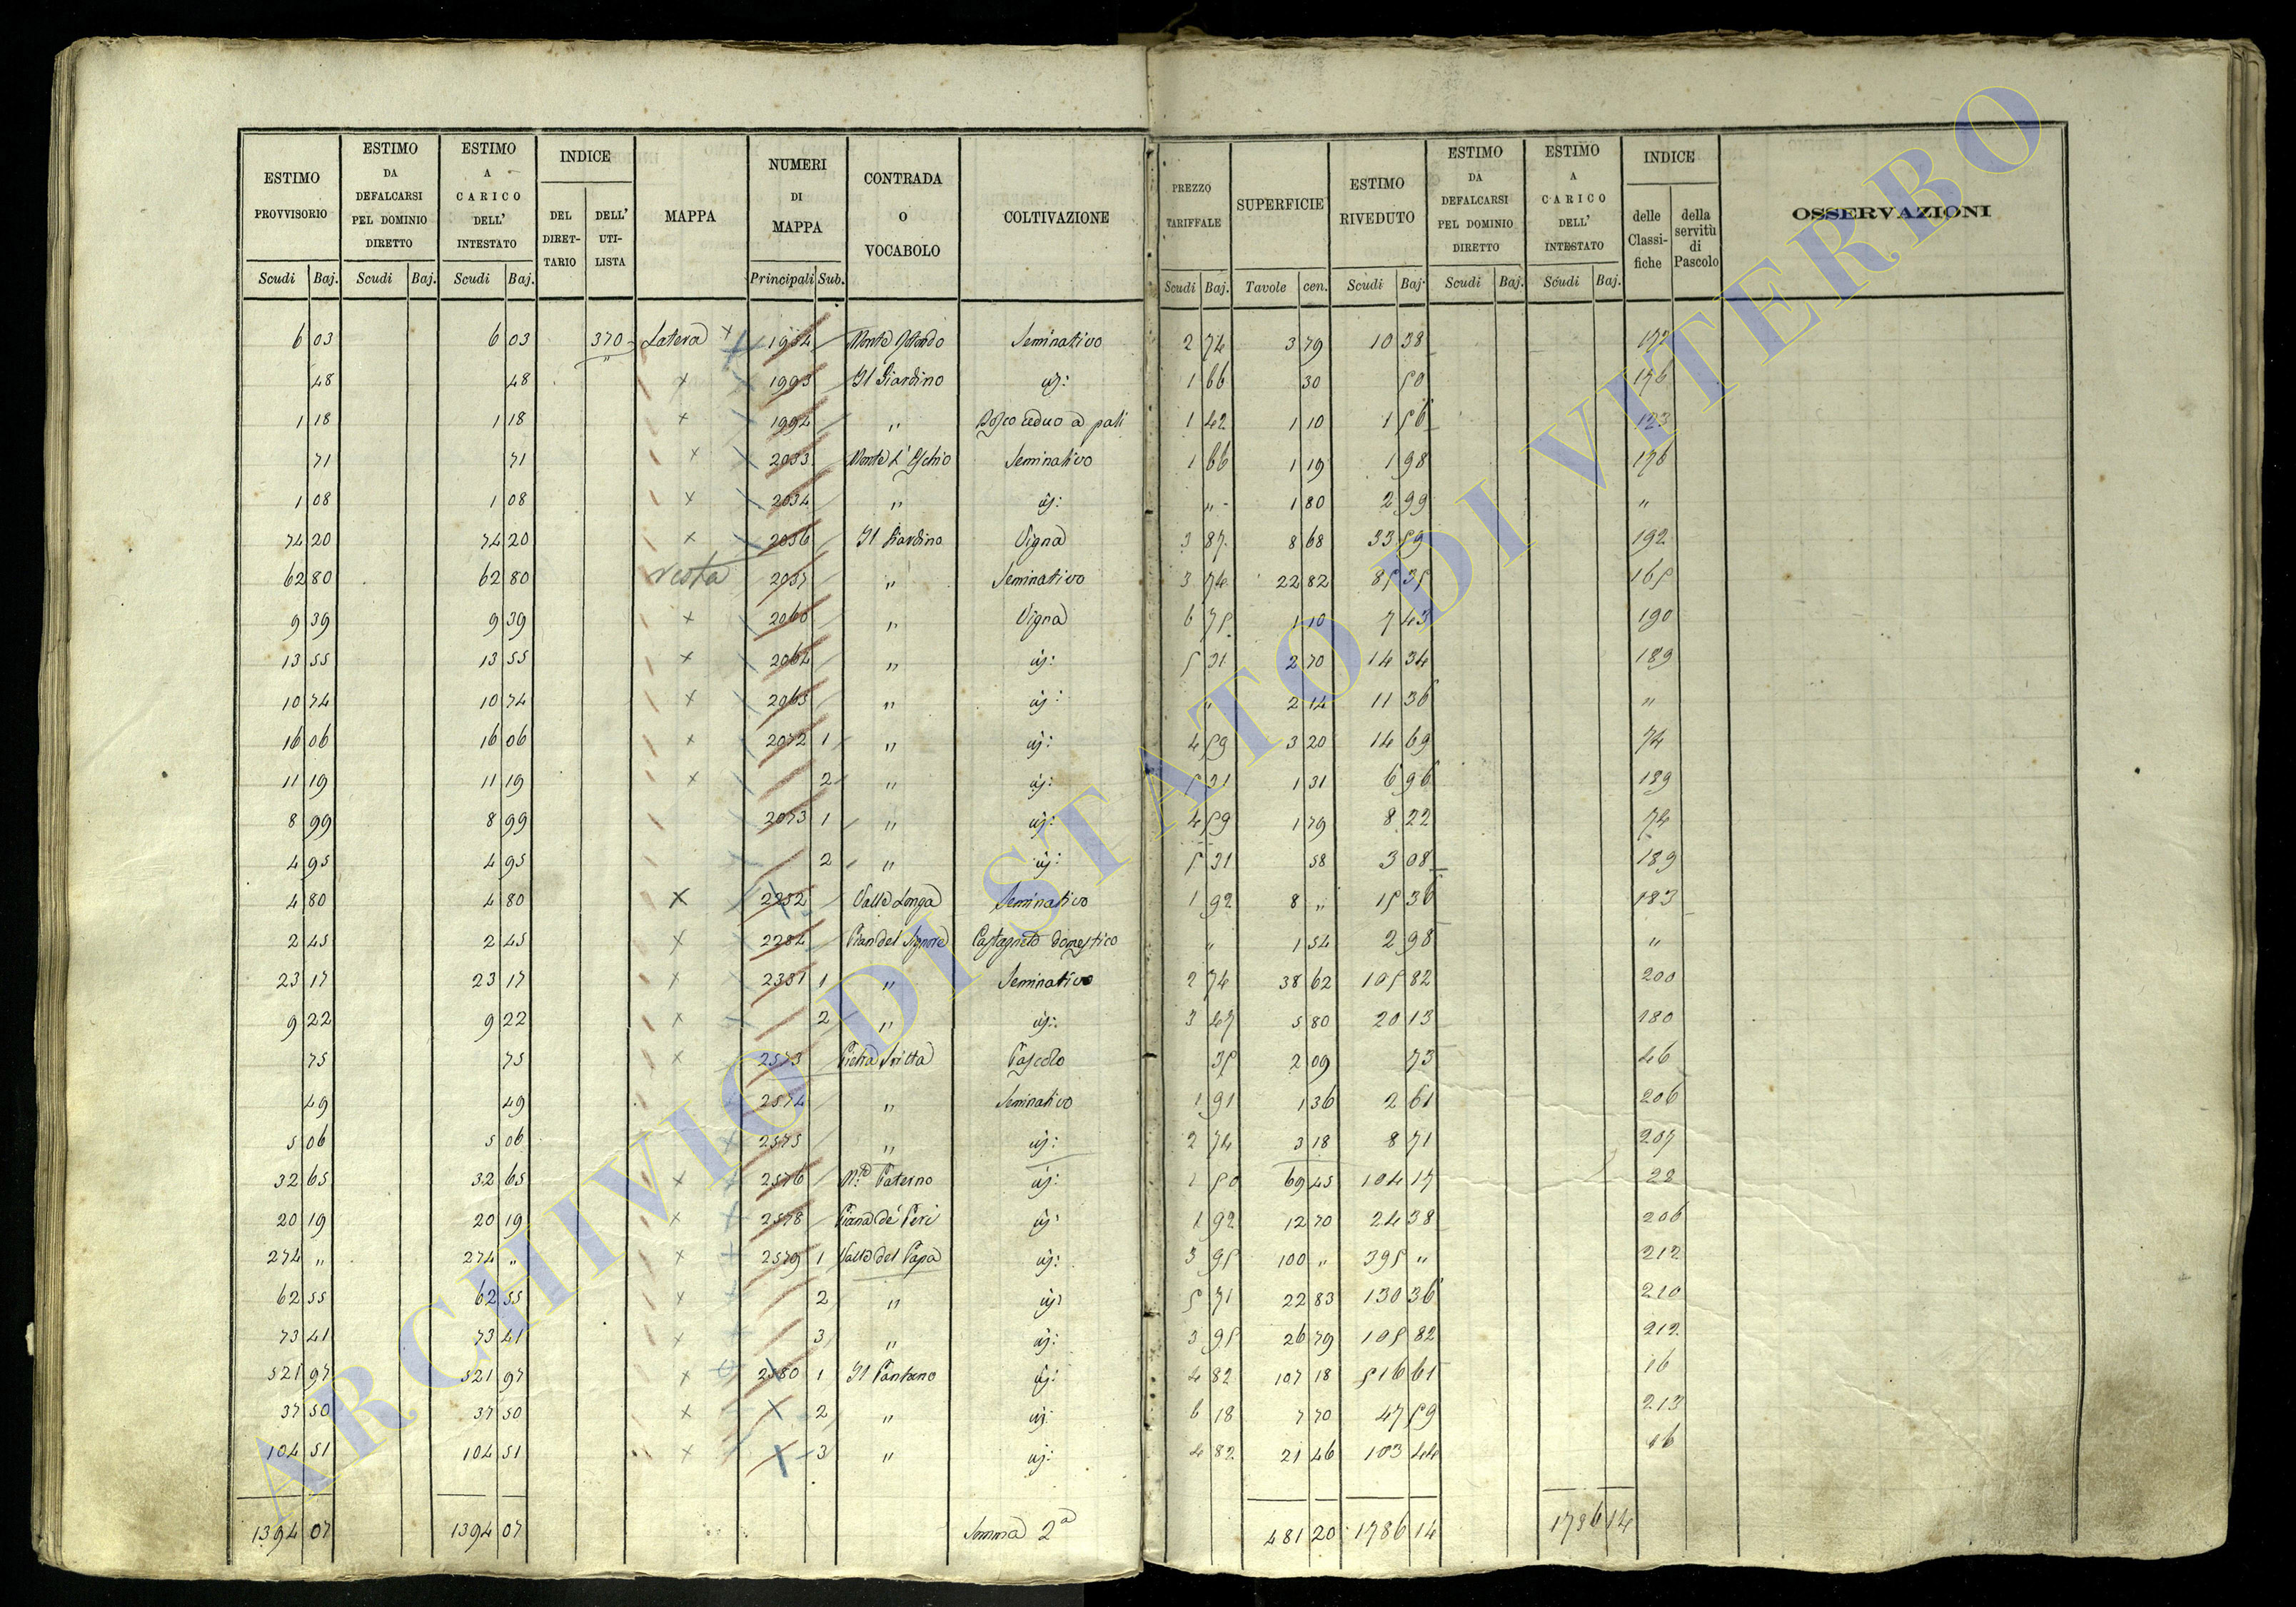 ESTIMO PROVVISORIO | ESTIMO DA DEFALCARSI PEL DOMINIO DIRETTO | ESTIMO A CARICO DELL' INTESTATO | INDICE | MAPPA | NUMERI DI MAPPA | CONTRADA O VOCABOLO | COLTIVAZIONE | PREZZO TARIFFALE | SUPERFICIE | ESTIMO RIVEDUTO | ESTIMO DA DEFALCARSI PEL DOMINIO DIRETTO | ESTIMO A CARICO DELL' INTESTATO | INDICE | OSSERVAZIONI
DEL DIRETTARIO | DELL' UTILISTA | delle Classifiche | della servitù di Pascolo
Scudi Baj. | Scudi Baj. | Scudi Baj. | Principali Sub. | Scudi Baj. | Tavole cen. | Scudi Baj. | Scudi Baj. | Scudi Baj.
6 03 | 6 03 | 370 | Latera x | Monte Rotondo | Seminativo | 2 74 | 3 79 | 10 38 | 172
48 | 48 | x | 1993 | Il Giardino | id: | 1 66 | 30 | 50 | 176
1 18 | 1 18 | x | 1994 | " | Bosco ceduo a pali | 1 42 | 1 10 | 1 56 | 123
71 | 71 | x | 2033 | Seminativo | 1 66 | 1 19 | 1 98 | 176
1 08 | 1 08 | x | 2034 | " | id: | " | 1 80 | 2 99 | "
74 20 | 74 20 | x | 2056 | Il Giardino | Vigna | 3 87 | 8 68 | 33 59 | 192
62 80 | 62 80 | resta | 2057 | " | Seminativo | 3 74 | 22 82 | 85 35 | 165
9 39 | 9 39 | x | 2060 | " | Vigna | 6 75 | 1 10 | 7 43 | 190
13 55 | 13 55 | x | 2064 | " | id: | 5 31 | 2 70 | 14 34 | 189
10 74 | 10 74 | x | 2065 | " | id: | " | 2 14 | 11 36 | "
16 06 | 16 06 | x | 2072 1 | " | id: | 4 59 | 3 20 | 14 69 | 74
11 19 | 11 19 | x | 2 | " | id: | 5 31 | 1 31 | 6 96 | 189
8 99 | 8 99 | 2073 1 | " | id: | 4 59 | 1 79 | 8 22 | 74
4 95 | 4 95 | 2 | " | id: | 5 31 | 58 | 3 08 | 189
4 80 | 4 80 | x | 2252 | Valle Longa | Seminativo | 1 92 | 8 " | 15 36 | 183
2 45 | 2 45 | x | 2284 | Pian del Signore | Castagneto domestico | " | 1 54 | 2 98 | "
23 17 | 23 17 | x | 2331 1 | " | Seminativo | 2 74 | 38 62 | 105 82 | 200
9 22 | 9 22 | x | 2 | " | id: | 3 47 | 5 80 | 20 13 | 180
75 | 75 | x | 2573 | Pietra Fritta | Pascolo | 35 | 2 09 | 73 | 46
49 | 49 | 2574 | " | Seminativo | 1 91 | 1 36 | 2 61 | 206
5 06 | 5 06 | 2575 | " | id: | 2 74 | 3 18 | 8 71 | 207
32 65 | 32 65 | x | 2576 | Mte Paterno | id: | 1 50 | 69 45 | 104 17 | 28
20 19 | 20 19 | x | 2578 | Piana de' Peri | id: | 1 92 | 12 70 | 24 38 | 206
274 " | 274 " | x | 2579 1 | Valle del Papa | id: | 3 95 | 100 " | 395 " | 212
62 55 | 62 55 | x | 2 | " | id: | 5 71 | 22 83 | 130 36 | 210
73 41 | 73 41 | x | 3 | " | id: | 3 95 | 26 79 | 105 82 | 212
521 97 | 521 97 | x | 2580 1 | Il Pantano | id: | 4 82 | 107 18 | 516 61 | 16
37 50 | 37 50 | x | 2 | " | id: | 6 18 | 7 70 | 47 59 | 213
104 51 | 104 51 | x | 3 | " | id: | 4 82 | 21 46 | 103 44 | 16
1394 07 | 1394 07 | Somma 2a | 481 20 | 1786 14 | 1786 14
ARCHIVIO DI STATO DI VITERBO